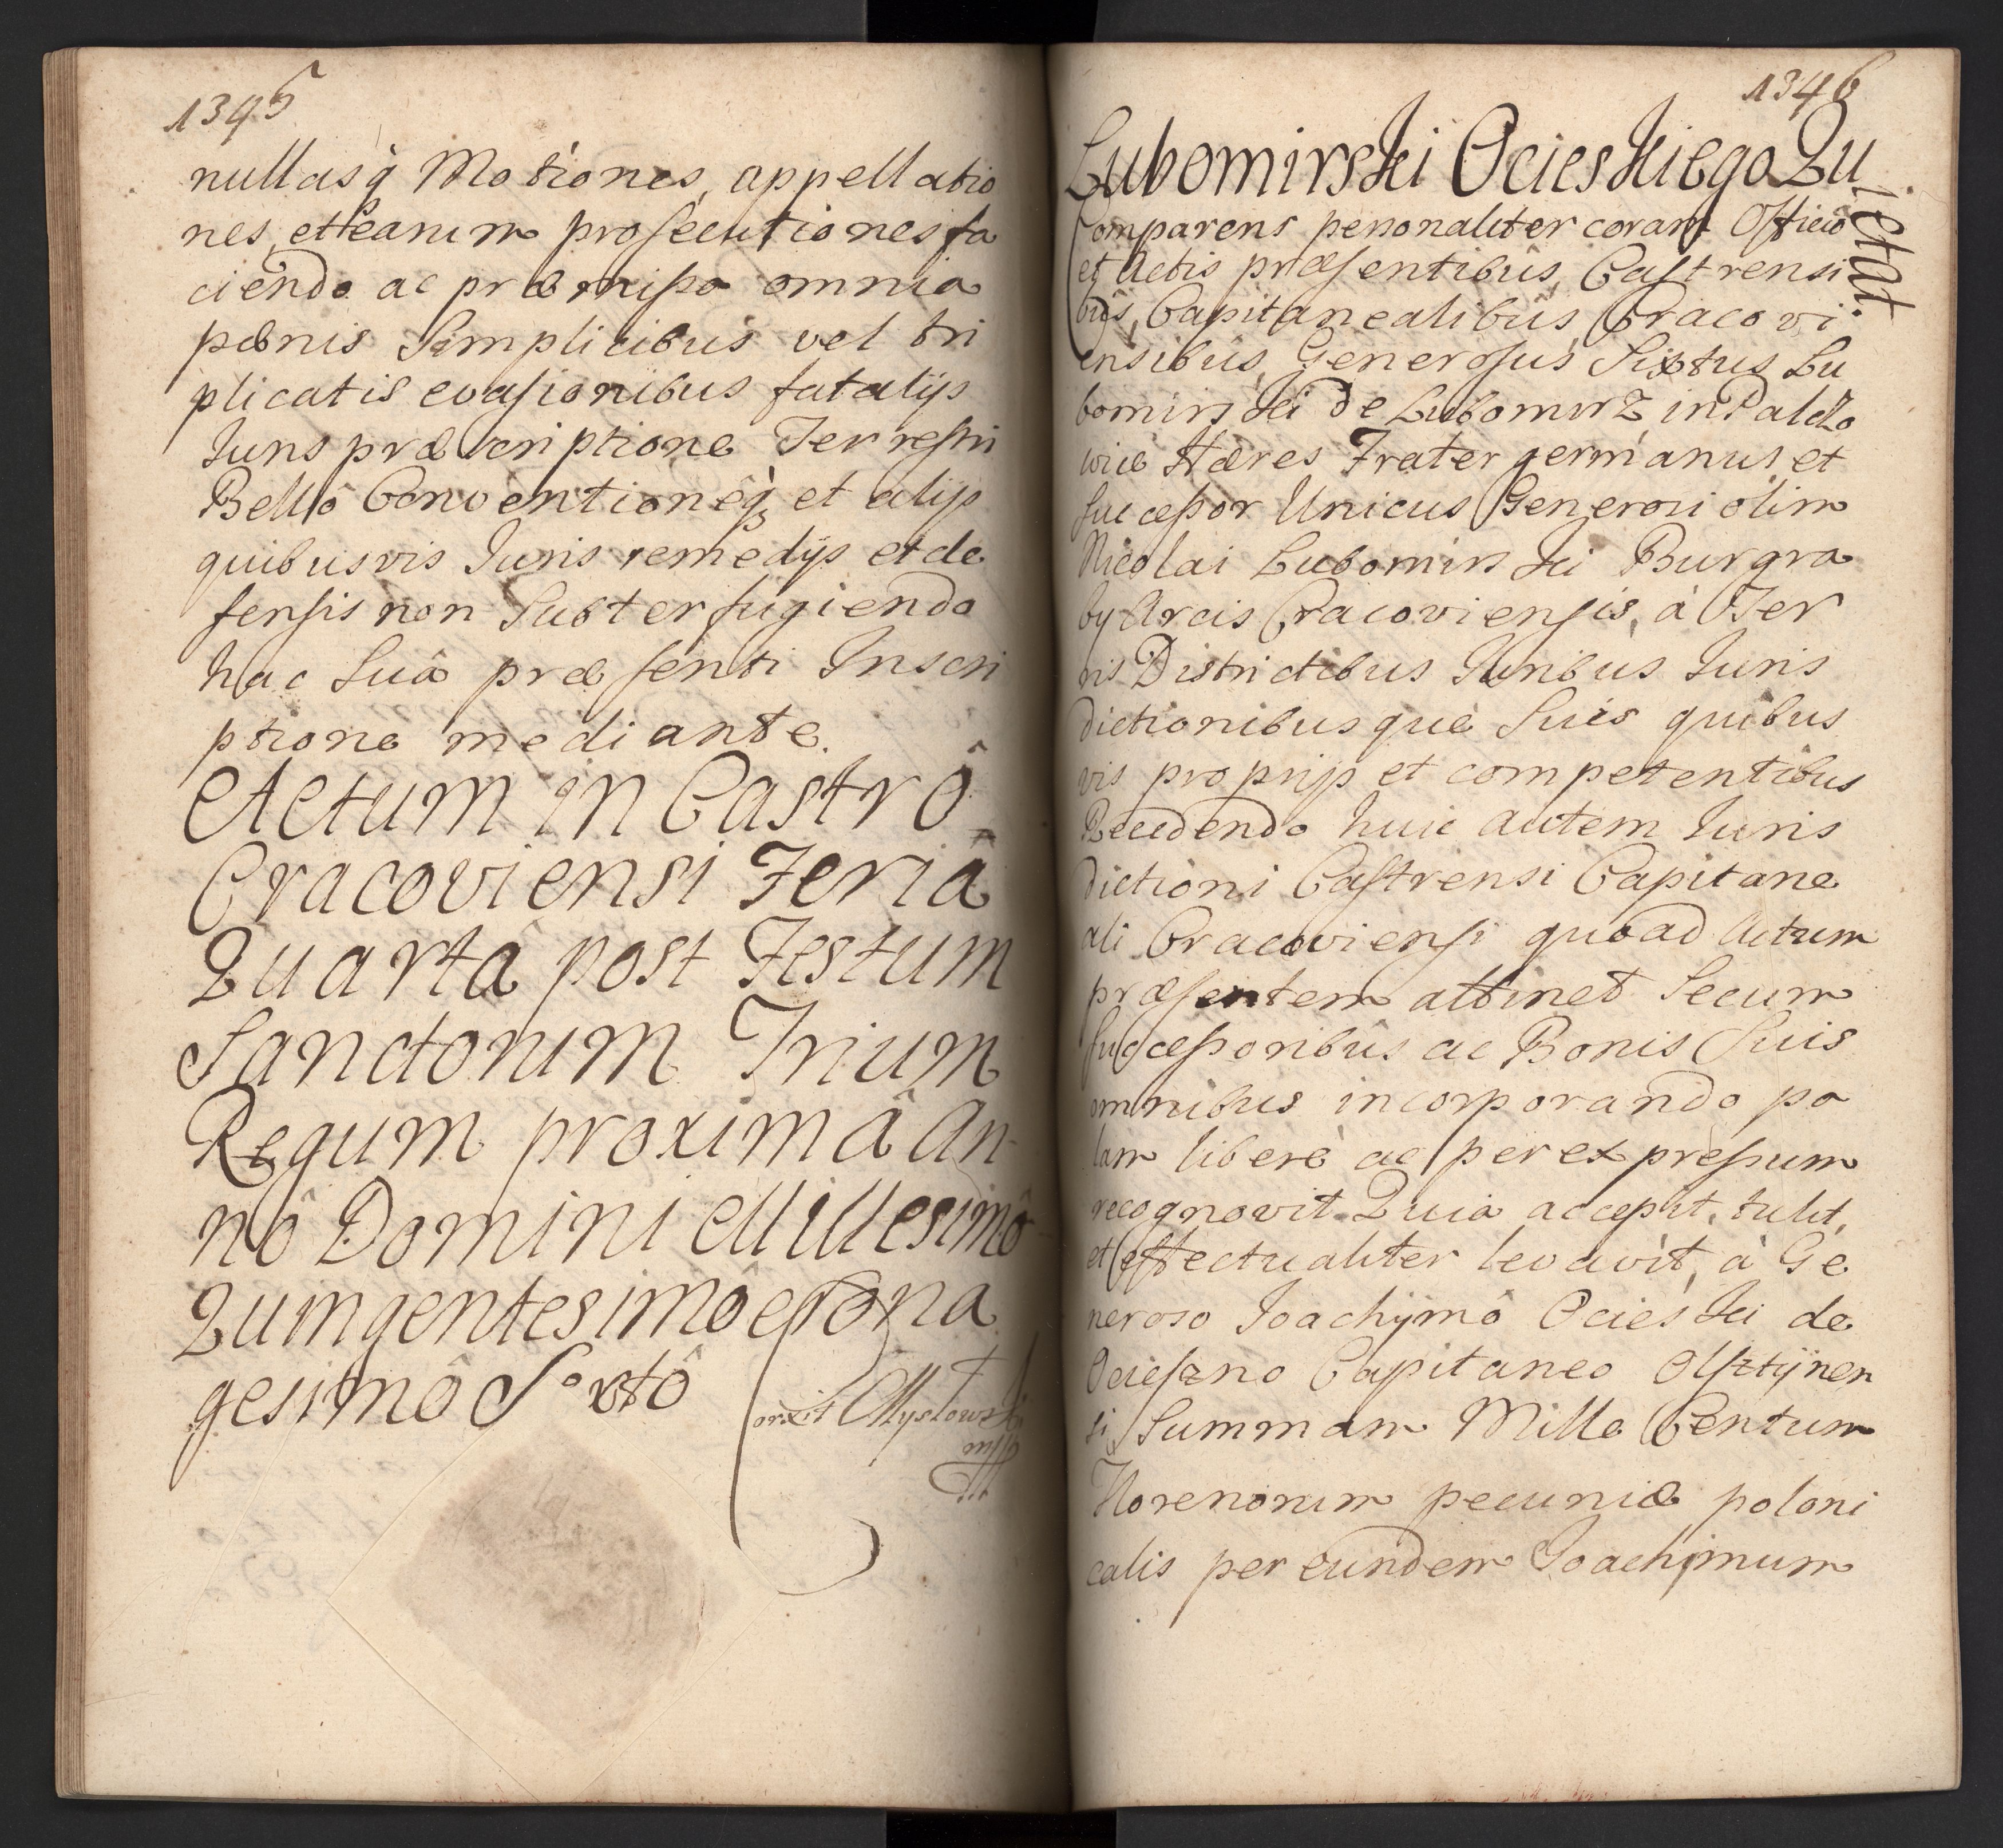 1345
nullasq̀ Motiones, appellatio
nes, et earum prosecutiones fa
ciendo ac præmissa omnia
pænis Simplicibus vel tri
plicatis evasionibus fatalijs
Iuris præscriptione Terrestri
Bellô Conventioneq̀ et alijs
quibusvis Iuris remedijs et de
fensis non Subterfugiendo
hac Suâ præsenti Inscri
ptione mediante.
Actum in Castrô
Cracoviensi Feriâ
Quartâ post Festum
Sanctorum Trium
Regum proximâ An
nô Domini Millesimô
Quingentesimô Nona
gesimô Sextô
Myslowski
mpp
1346
Lubomirski Ocieskiego Qu
ietat.
Comparens personaliter coram Officio
et Actis præsentibûs, Castrensi
bûs, Capitanealibûs Cracovi
ensibûs, Generosus Sixtus Lu
bomirski de Lubomirz in Paldzo
wice Hæres Frater germanus et
Successor Unicus Generosi olim
Nicolai Lubomirski Burgra
bij Arcis Cracoviensis, à Ter
ris Districtibus Iuribus Iuris
dictionibusque Suis quibus
vis proprijs et competentibus
Recedendo huic autem Iuris
dictioni Castrensi Capitane
ali Cracoviensi quoad Actum
præsentem attinet Secum
Successoribûs ac Bonis Suis
omnibus incorporando pa
lam liberè ac per expressum
recognovit Quia accepit, tulit,
et effectualiter levavit, à Ge
neroso Ioachijmô Ocieski de
Ocieszno Capitaneo Olsztijnen
si Summam Mille Centum
Florenorum pecuniæ poloni
calis per eundem Ioachijmum